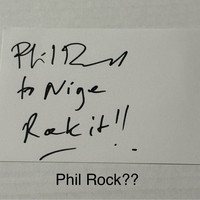 Phil
to Nige
Rock it!!
Phil Rock??